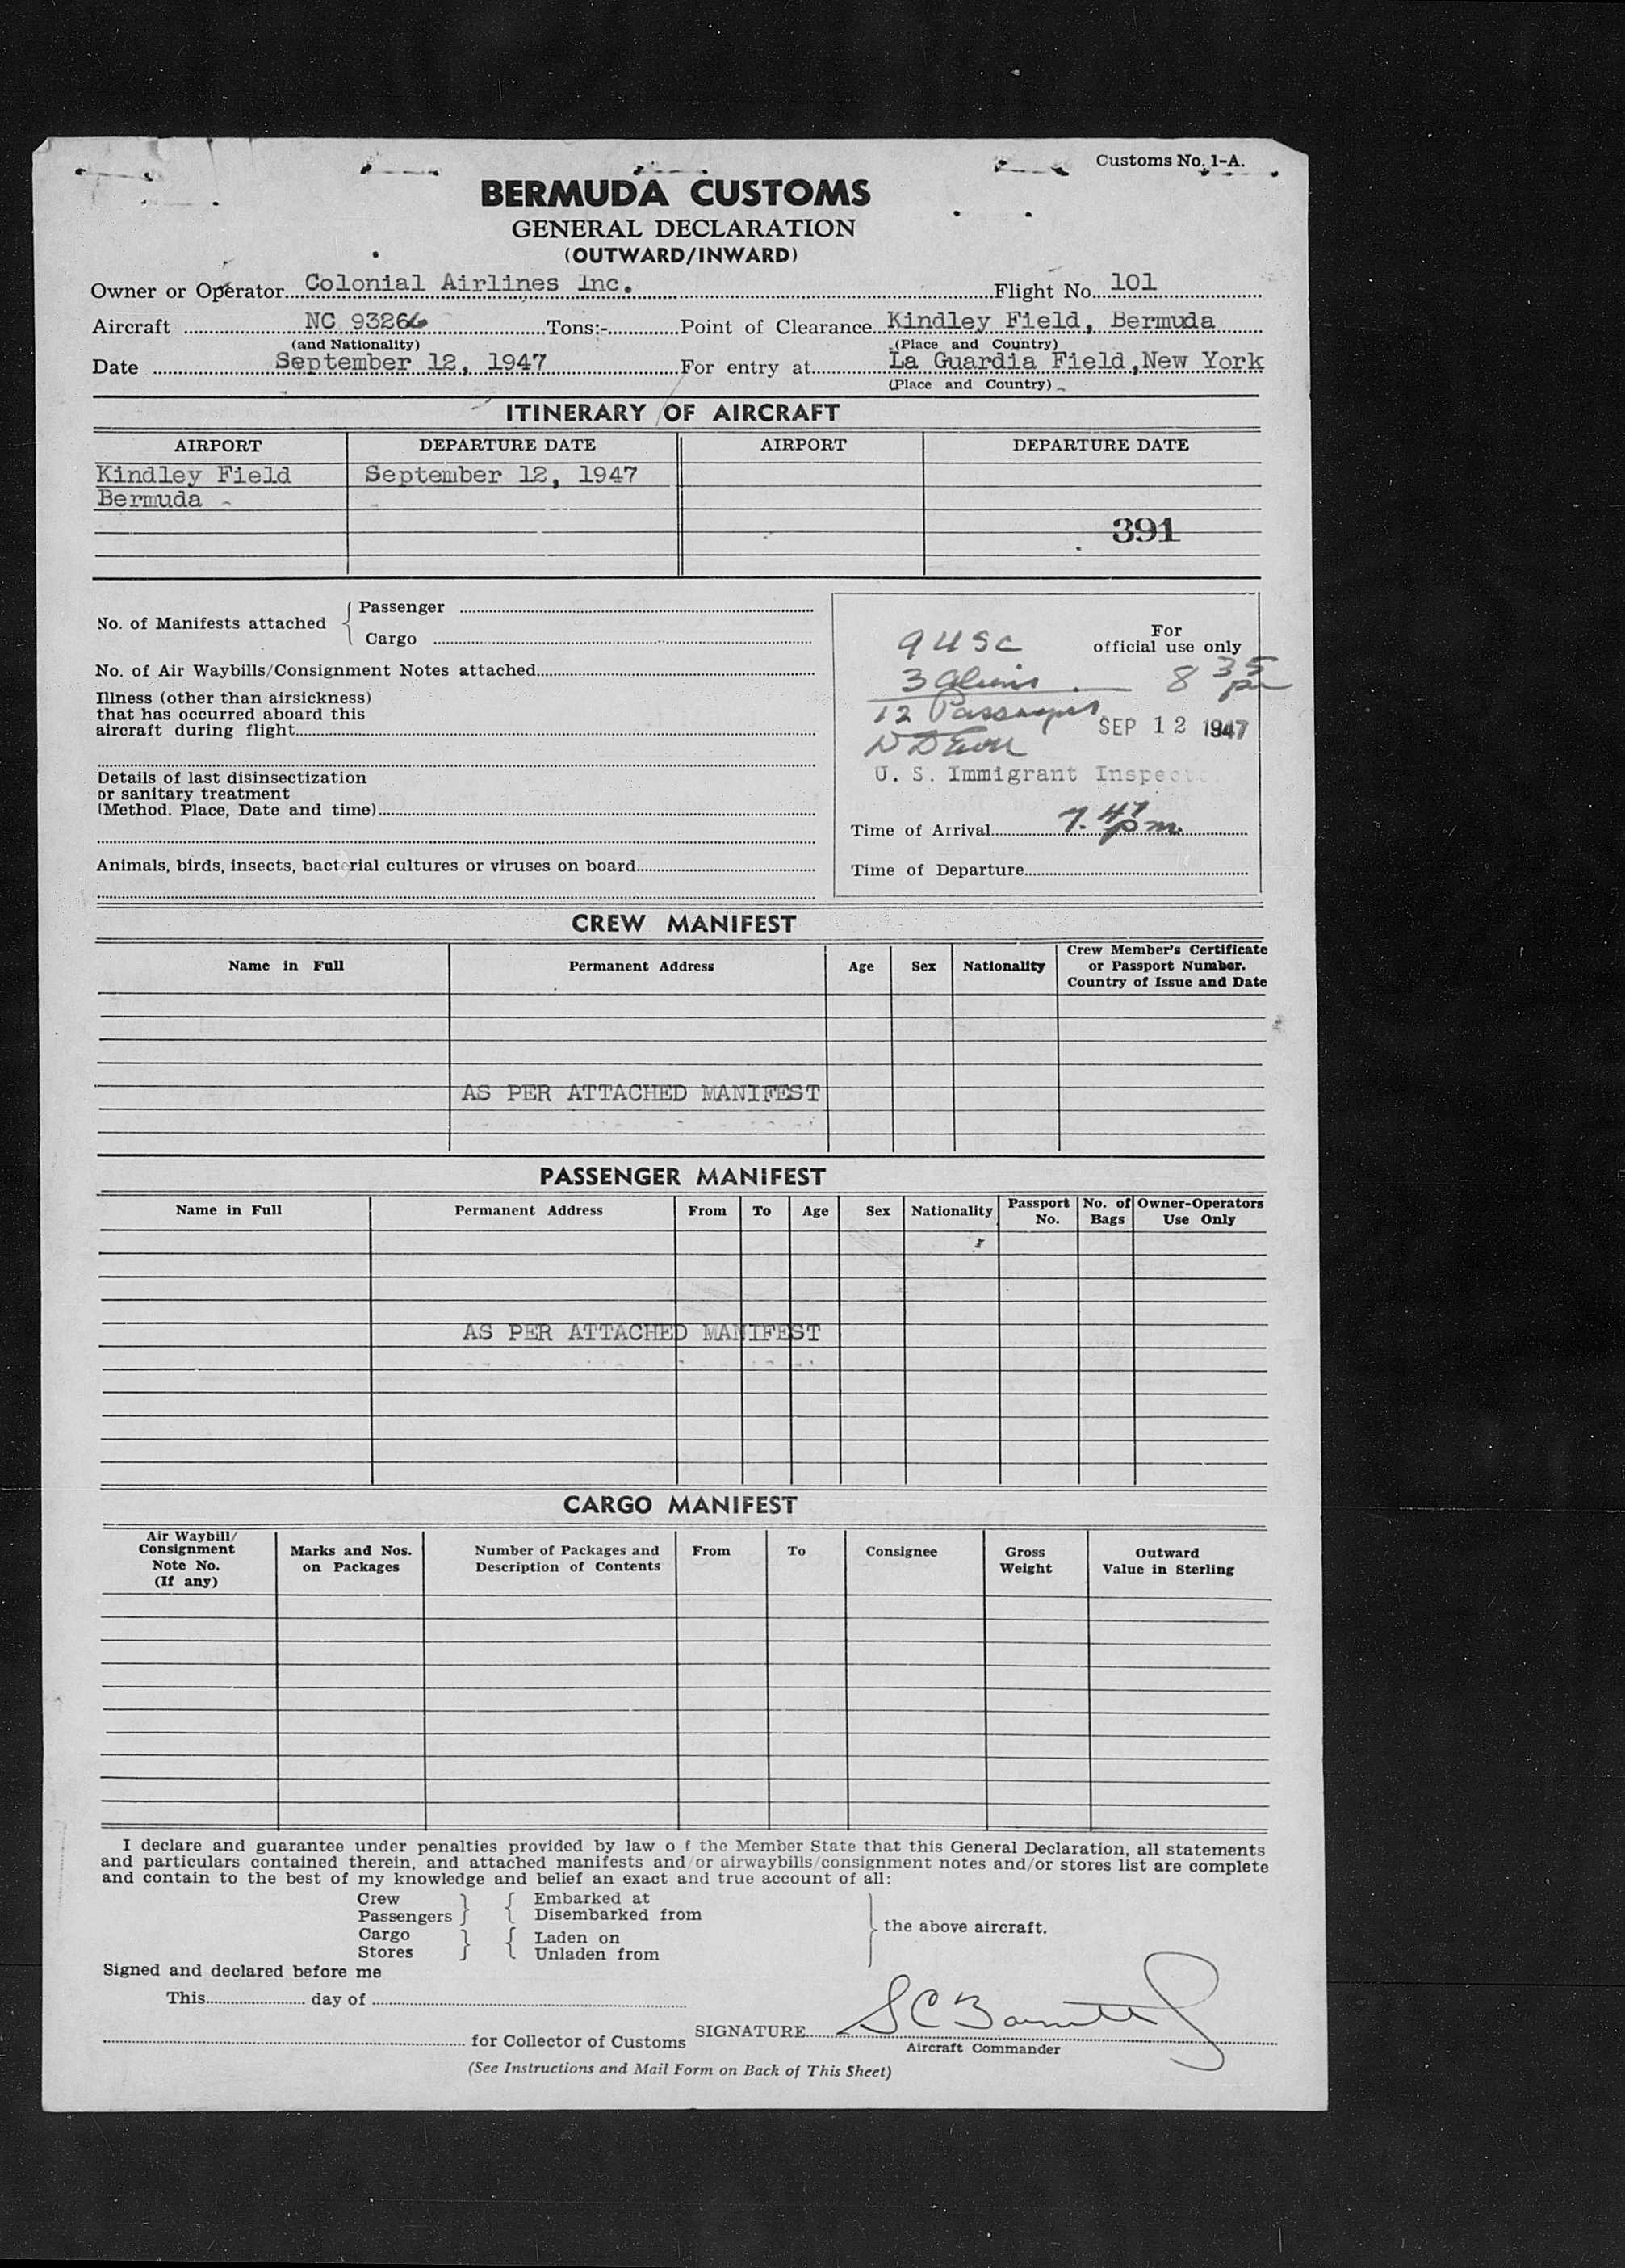 Customs No. 1-A.
BERMUDA CUSTOMS
GENERAL DECLARATION
(OUTWARD/INWARD)
Owner or Operator Colonial Airlines Inc. Flight No. 101
Aircraft NC 93266 Tons:- Point of Clearance Kindley Field, Bermuda
(and Nationality) (Place and Country)
Date September 12, 1947 For entry at La Guardia Field, New York
(Place and Country)
ITINERARY OF AIRCRAFT
AIRPORT DEPARTURE DATE AIRPORT DEPARTURE DATE
Kindley Field September 12, 1947
Bermuda -
391
No. of Manifests attached { Passenger
Cargo
No. of Air Waybills/Consignment Notes attached
Illness (other than airsickness)
that has occurred aboard this
aircraft during flight
Details of last disinsectization
or sanitary treatment
(Method. Place, Date and time)
Animals, birds, insects, bacterial cultures or viruses on board
For
official use only
9 USC
3 Aliens 8 35 pm
12 Passengers
SEP 12 1947
U. S. Immigrant Inspector
Time of Arrival 7.47 pm.
Time of Departure
CREW MANIFEST
Name in Full Permanent Address Age Sex Nationality Crew Member's Certificate
or Passport Number.
Country of Issue and Date
AS PER ATTACHED MANIFEST
PASSENGER MANIFEST
Name in Full Permanent Address From To Age Sex Nationality Passport No. No. of Bags Owner-Operators Use Only
AS PER ATTACHED MANIFEST
CARGO MANIFEST
Air Waybill/ Consignment Note No. (If any) Marks and Nos. on Packages Number of Packages and Description of Contents From To Consignee Gross Weight Outward Value in Sterling
I declare and guarantee under penalties provided by law o f the Member State that this General Declaration, all statements
and particulars contained therein, and attached manifests and/or airwaybills/consignment notes and/or stores list are complete
and contain to the best of my knowledge and belief an exact and true account of all:
Crew } { Embarked at
Passengers } { Disembarked from
} the above aircraft.
Cargo } { Laden on
Stores } { Unladen from
Signed and declared before me
This day of
for Collector of Customs SIGNATURE S C Barnett
Aircraft Commander
(See Instructions and Mail Form on Back of This Sheet)